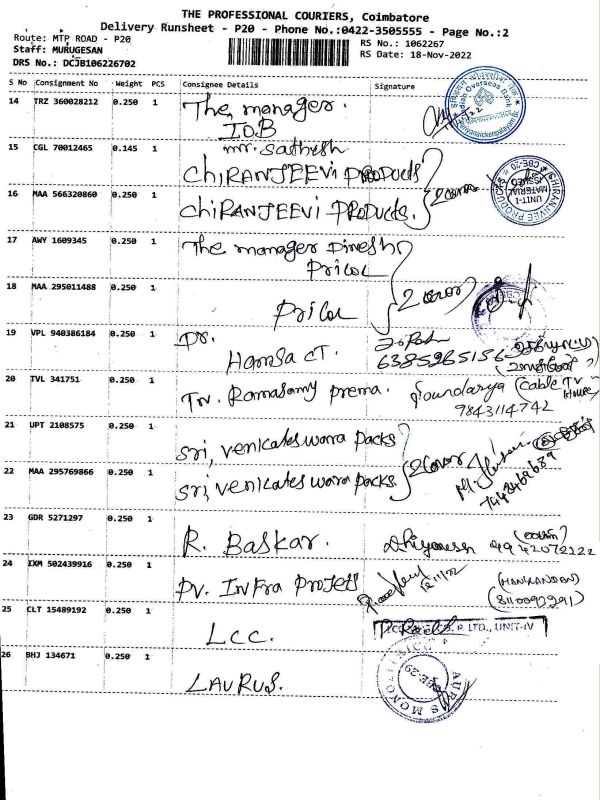 THE PROFESSIONAL COURIERS, Coimbatore
Delivery Runsheet - P20 - Phone No.:0422-3505555 - Page No.:2
Route: MTP ROAD - P20
RS No.: 1062267
Staff: MURUGESAN
RS Date: 18-Nov-2022
DRS No.: DCJB106226702
S No Consignment No Weight PCS Consignee Details Signature
14 TRZ 360028212 0.250 1 The manager.
IOB
Indian Overseas Bank
15 CGL 70012465 0.145 1 mr. sathesh
CHIRANJEEVI PRODUCTS
16 MAA 566320860 0.250 1 CHIRANJEEVI PRODUCTS. 2 cover
UNIT-I MATERIAL ISSUED
17 AWY 1609345 0.250 1 The manager Dinesh
Pricol
18 MAA 295011488 0.250 1 Pricol 2 cover
19 VPL 940386184 0.250 1 Dr.
Hamsa CT. 6385265156
20 TVL 341751 0.250 1 Tv. Ramasamy prema. Soundarya (Cable TV House)
9843114742
21 UPT 2108575 0.250 1 Sri, venkateswara packs
22 MAA 295769866 0.250 1 Sri, venkateswara packs 2 cover
23 GDR 5271297 0.250 1 R. Baskar.
24 IXM 502439916 0.250 1 PV. Infra Projets
25 CLT 15489192 0.250 1 Lcc. P LTD., UNIT-IV
26 BHJ 134671 0.250 1 LAURUS.